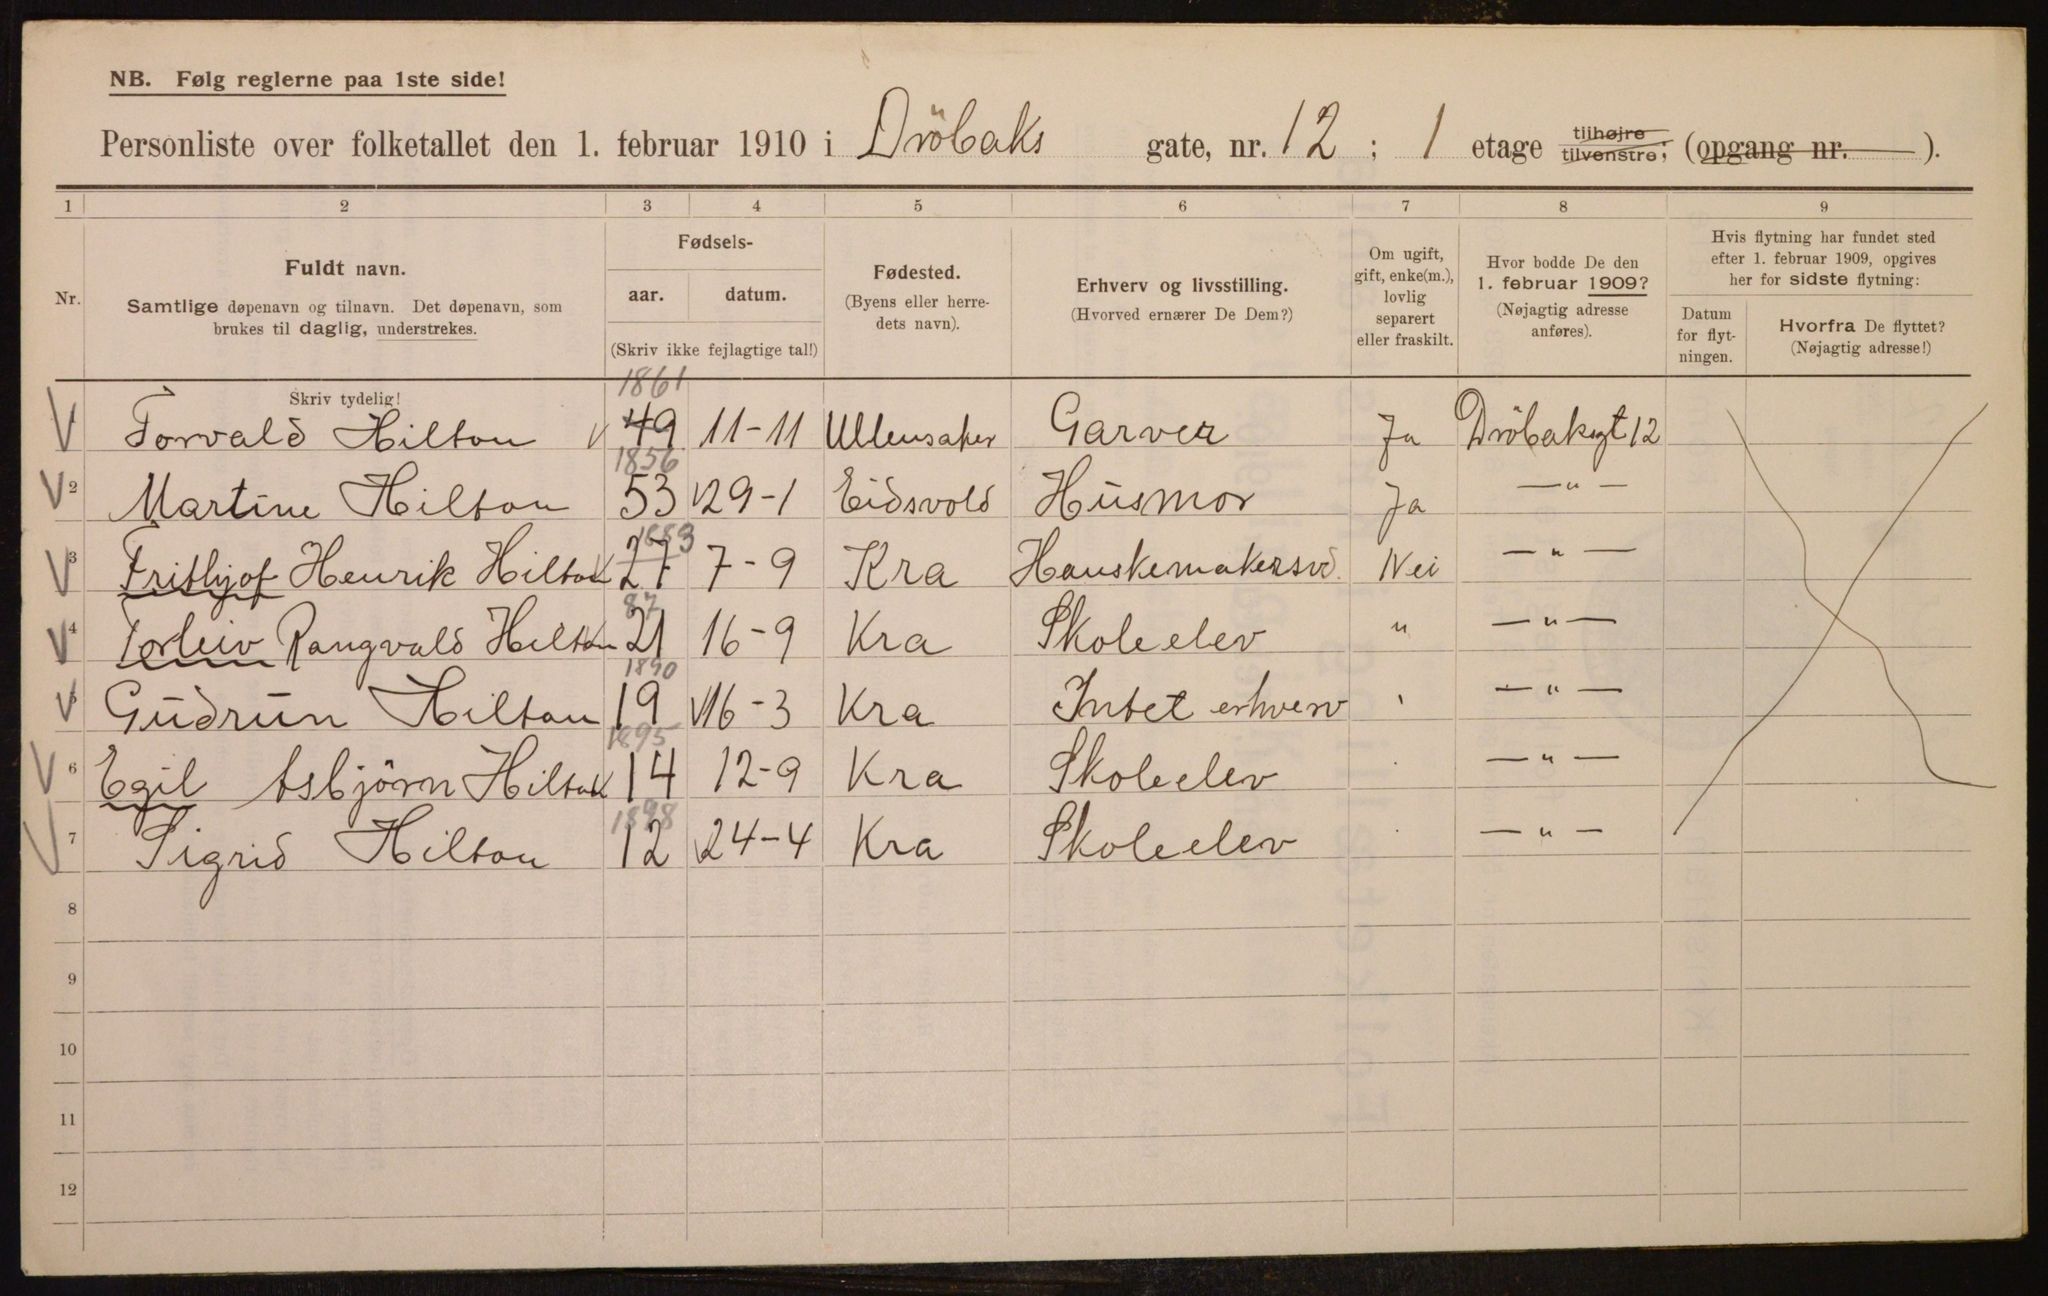 NB. Følg reglerne paa 1ste side!
Personliste over folketallet den 1. februar 1910 i Dröbaks gate, nr. 12 ; 1 etage tilhøjre tilvenstre; (opgang nr. ).
1 2 3 4 5 6 7 8 9
Nr.
Fuldt navn.
Samtlige døpenavn og tilnavn. Det døpenavn, som
brukes til daglig, understrekes.
Skriv tydelig!
Fødsels-
aar. datum.
(Skriv ikke fejlagtige tal!)
Fødested.
(Byens eller herre-
dets navn).
Erhverv og livsstilling.
(Hvorved ernærer De Dem?)
Om ugift,
gift, enke(m.),
lovlig
separert
eller fraskilt.
Hvor bodde De den
1. februar 1909?
(Nøjagtig adresse
anføres).
Hvis flytning har fundet sted
efter 1. februar 1909, opgives
her for sidste flytning:
Datum
for flyt-
ningen.
Hvorfra De flyttet?
(Nøjagtig adresse!)
1861
Torvald Hilton 49 11-11 Ullensaker Garver Ja Dröbaksgt 12
1856
2 Martine Hilton 53 29-1 Eidsvold Husmor Ja —"—
1883
3 Frithjof Henrik Hilton 27 7-9 Kra Hanskemakersv. Nei —"—
87
4 Torleiv Rangvald Hilton 21 16-9 Kra Skoleelev " —"—
1890
5 Gudrun Hilton 19 16-3 Kra Intet erhverv —"—
1895
6 Egil Asbjörn Hilton 14 12-9 Kra Skoleelev —"—
1898
7 Sigrid Hilton 12 24-4 Kra Skoleelev —"—
8
9
10
11
12